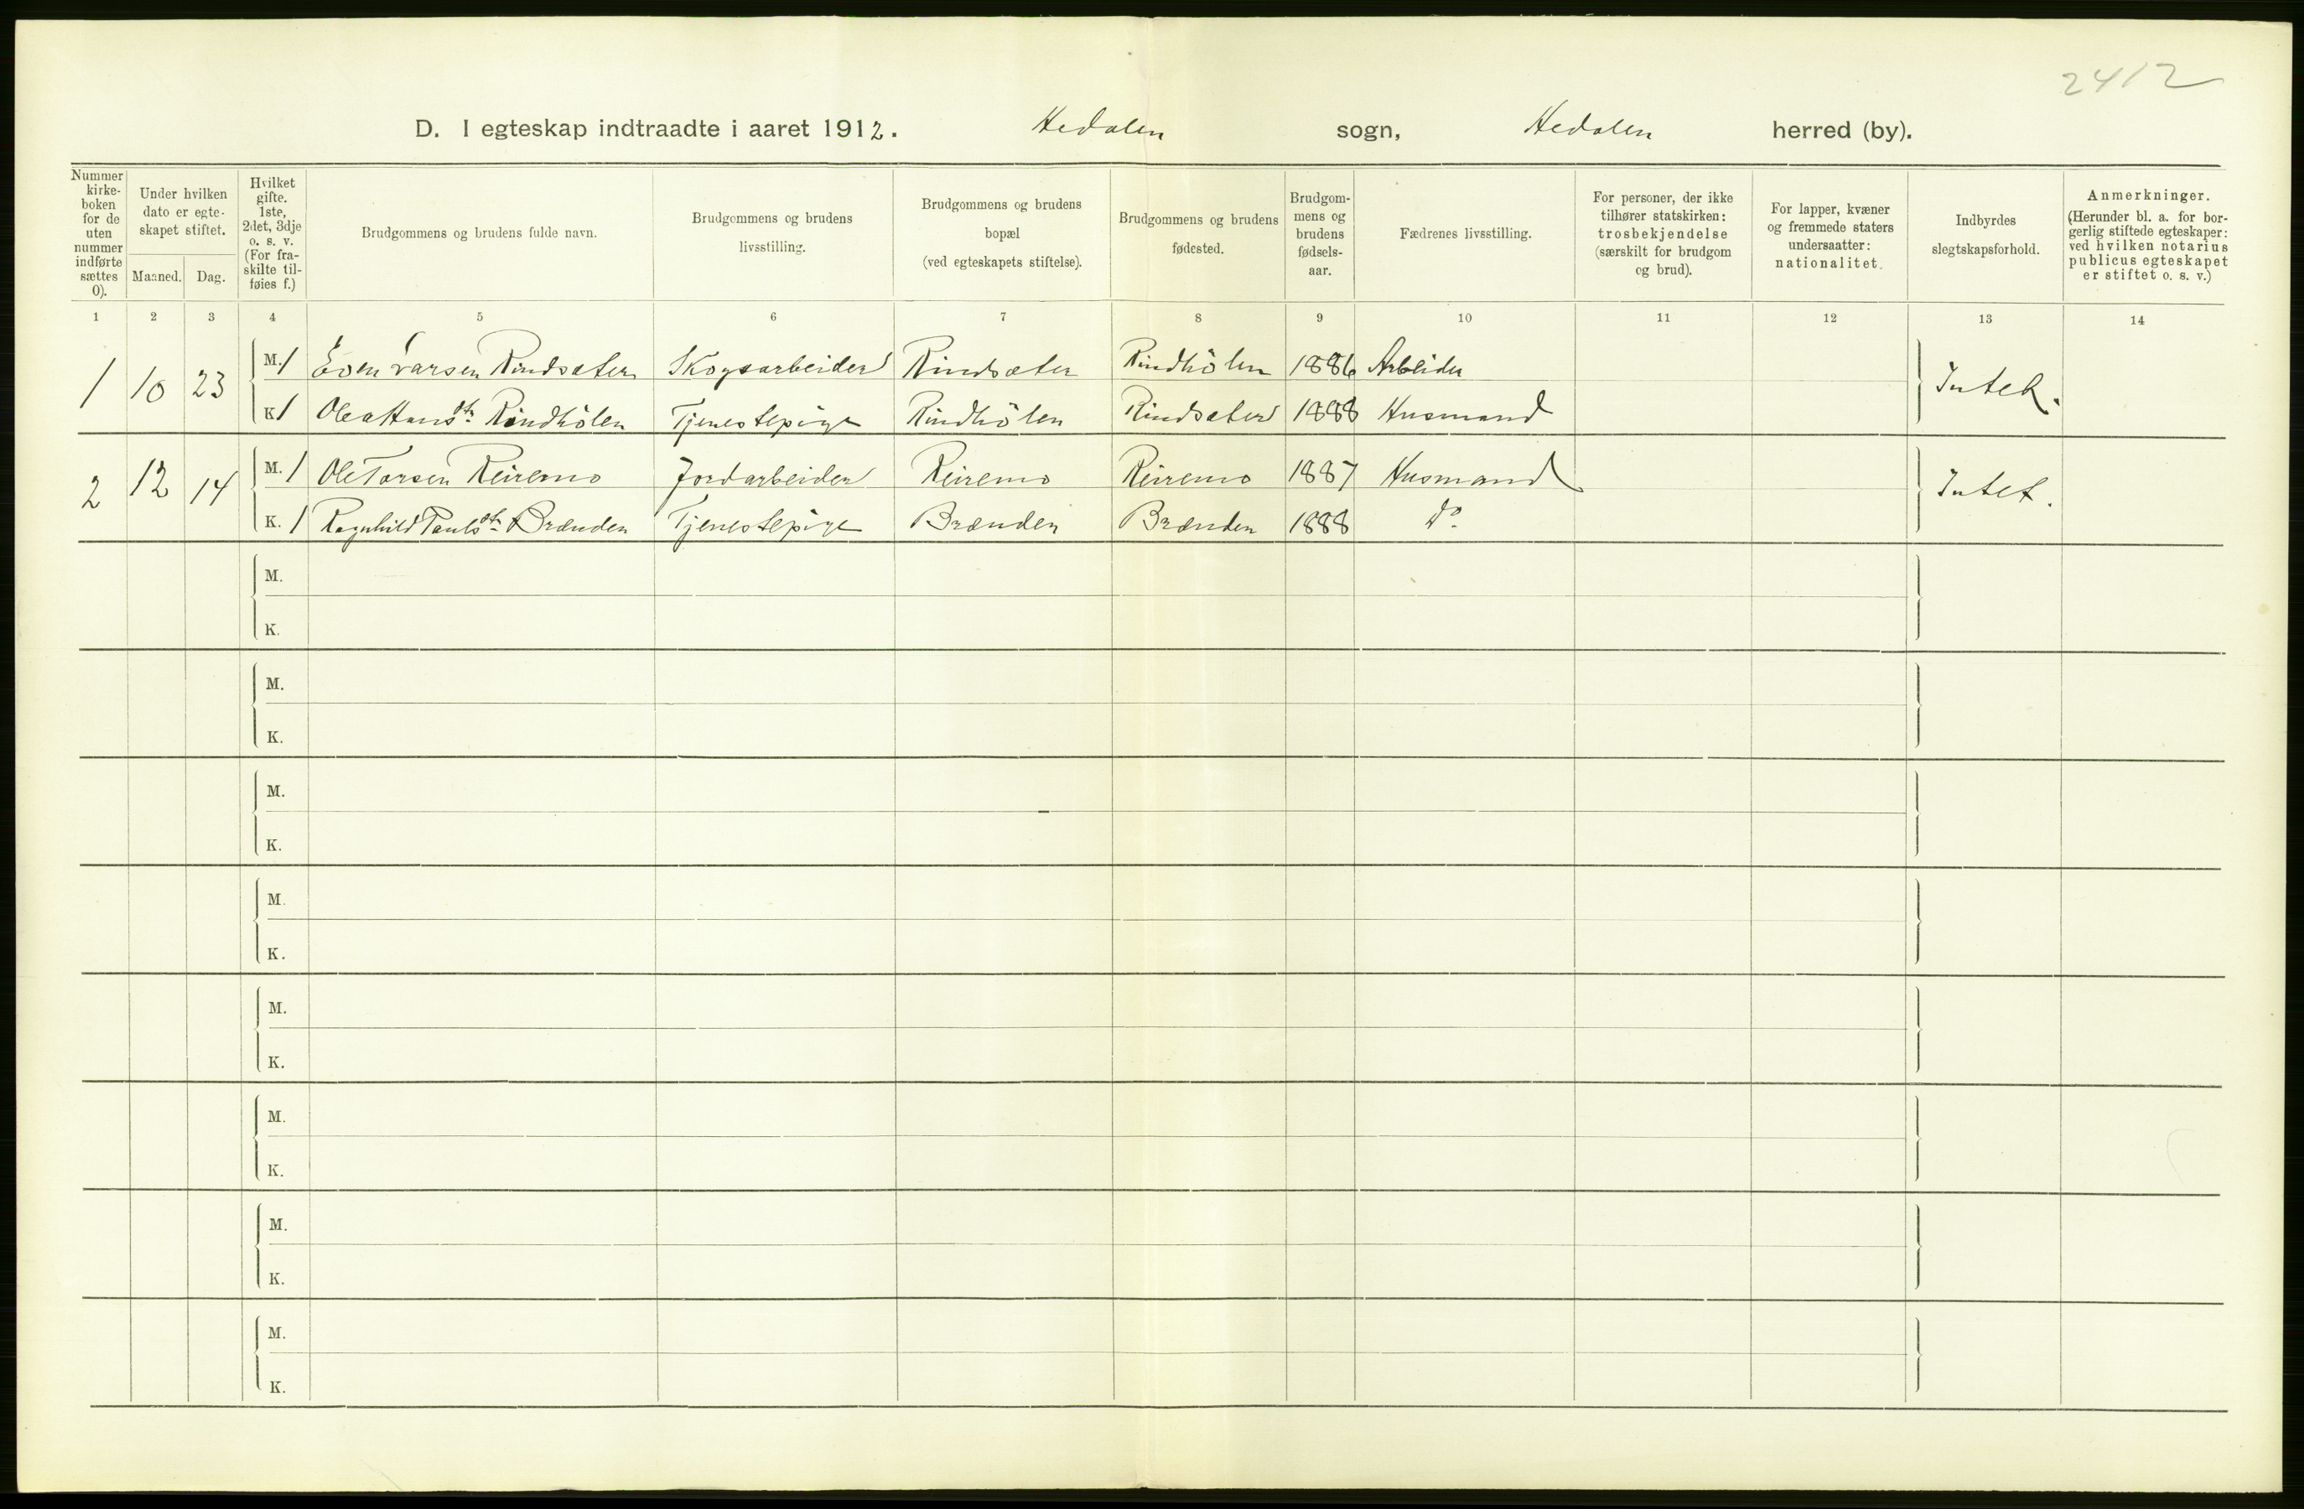 2412
D. I egteskap indtraadte i aaret 1912. Hedalen sogn, Hedalen herred (by).
Nummer i kirkeboken for de uten nummer indførte sættes 0).
Under hvilken dato er egteskapet stiftet.
Maaned. Dag.
Hvilket gifte. 1ste, 2det, 3dje o. s. v. (For fraskilte tilføies f.)
Brudgommens og brudens fulde navn.
Brudgommens og brudens livsstilling.
Brudgommens og brudens bopæl (ved egteskapets stiftelse).
Brudgommens og brudens fødested.
Brudgommens og brudens fødselsaar.
Fædrenes livsstilling.
For personer, der ikke tilhører statskirken: trosbekjendelse (særskilt for brudgom og brud).
For lapper, kvæner og fremmede staters undersaatter: nationalitet.
Indbyrdes slegtskapsforhold.
Anmerkninger. (Herunder bl. a. for borgerlig stiftede egteskaper: ved hvilken notarius publicus egteskapet er stiftet o. s. v.)
1 2 3 4 5 6 7 8 9 10 11 12 13 14
1 10 23 M. 1 Even Ivarsen Rindsæter Skogsarbeider Rindsæter Rindhölen 1886 Arbeider Intet.
K. 1 Olea Hansdtr. Rindhölen Tjenestepige Rindhölen Rindsæter 1888 Husmand
2 12 14 M. 1 Ole Torsen Reiremo Jordarbeider Reiremo Reiremo 1887 Husmand Intet.
K. 1 Ragnhild Paulsdtr. Brænden Tjenestepige Brænden Brænden 1888 Do.
M.
K.
M.
K.
M.
K.
M.
K.
M.
K.
M.
K.
M.
K.
M.
K.